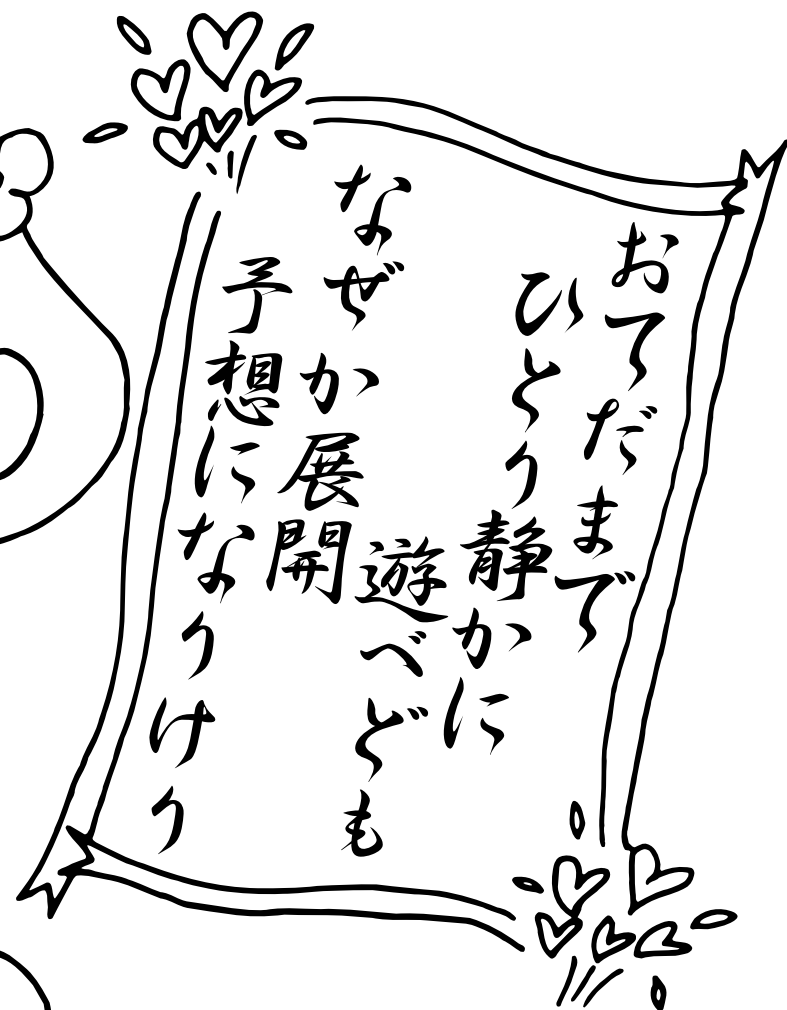 おてだまで
ひとり静かに
遊べども
なぜか展開
予想になりけり